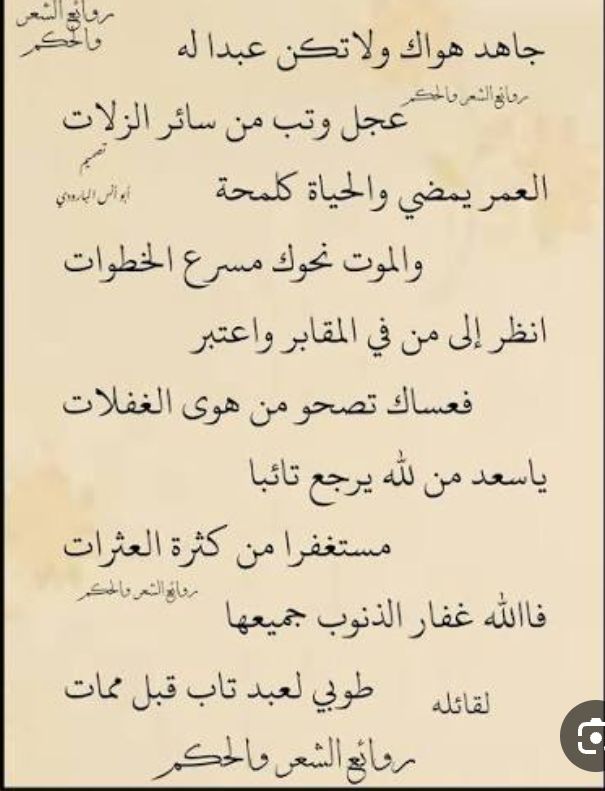 روائع الشعر
والحكم
جاهد هواك ولاتكن عبدا له
روائع الشعر والحكم
عجل وتب من سائر الزلات
تصميم
أبو أنس البارودي
العمر يمضي والحياة كلمحة
والموت نحوك مسرع الخطوات
انظر إلى من في المقابر واعتبر
فعساك تصحو من هوى الغفلات
ياسعد من لله يرجع تائبا
مستغفرا من كثرة العثرات
روائع الشعر والحكم
فاالله غفار الذنوب جميعها
طوبي لعبد تاب قبل ممات
لقائله
روائع الشعر والحكم